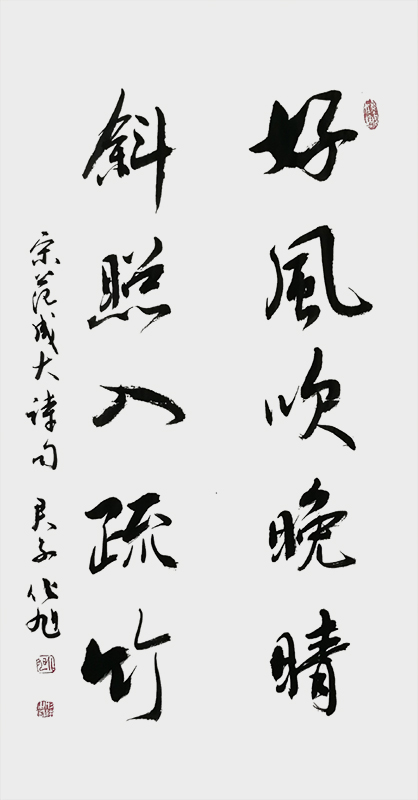 好風吹晚晴
斜照入疏竹
宋范成大詩句 君子化旭